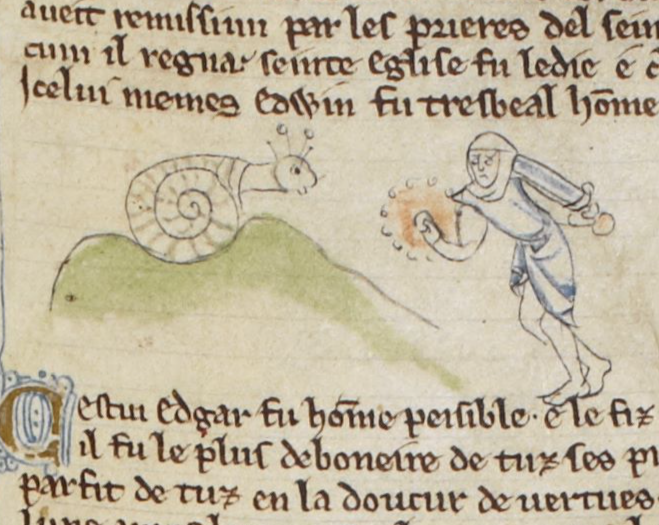 aueit remissiun par les prieres del sein
cum il regna· seinte eglise fu ledie e
Icelui memes Edwin fu tresbeal hōme
Cestui Edgar fu hōme peisible· e le fiz
il fu le plus deboneire de tuz ses
parfit de tuz en la doucur de uertues